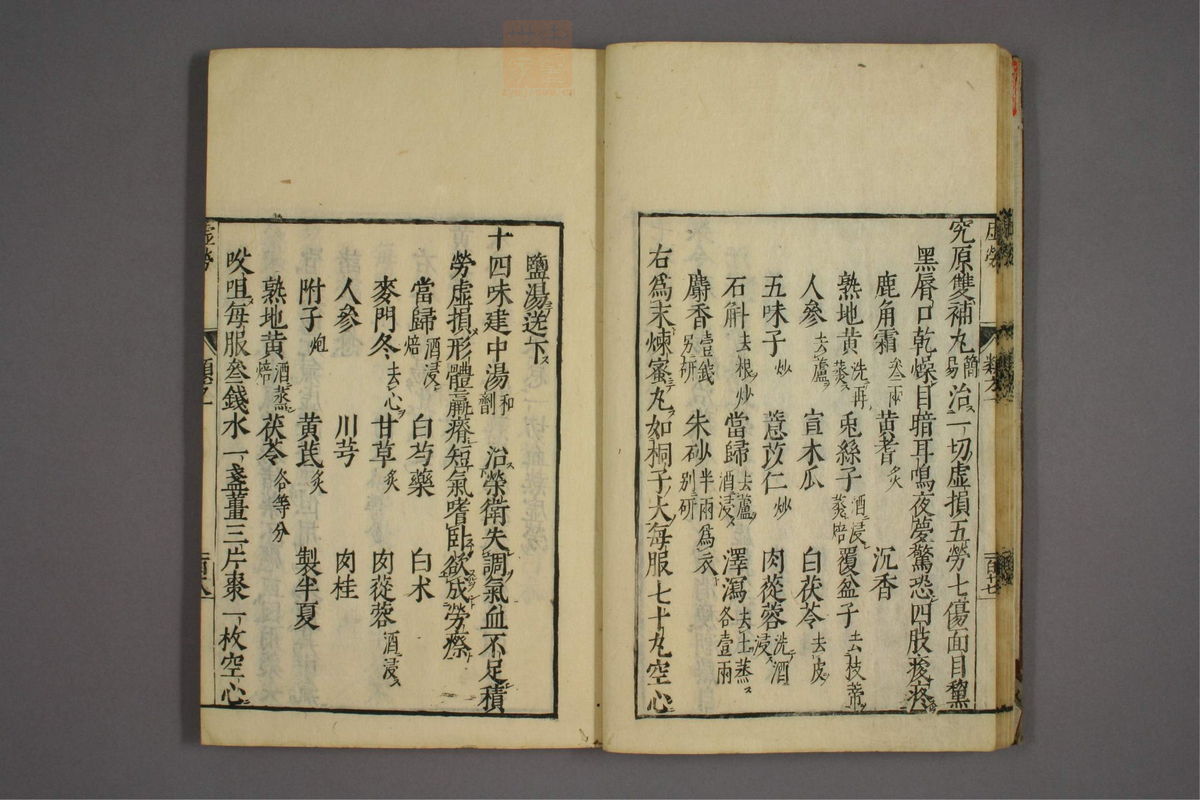 究原雙補丸簡易治一切虛損五勞七傷面目黧
黑脣口乾燥目暗耳鳴夜夢驚恐四肢痠疼
鹿角霜叁兩 黃耆炙 沉香
熟地黃洗再蒸 兎絲子酒浸蒸焙 覆盆子去枝蒂
人參去蘆 宣木瓜 白茯苓去皮
五味子炒 薏苡仁炒 肉蓯蓉洗酒浸
石斛去根炒 當歸去蘆酒浸 澤瀉去土蒸各壹兩
麝香壹錢別研 朱砂半兩別研爲衣
右爲末煉蜜丸如桐子大每服七十丸空心
鹽湯送下
十四味建中湯和劑 治榮衛失調氣血不足積
勞虛損形體羸瘠短氣嗜臥欲成勞瘵
當歸酒浸焙 白芍藥 白朮
麥門冬去心 甘草炙 肉蓯蓉酒浸
人參 川芎 肉桂
附子炮 黃芪炙 製半夏
熟地黃酒蒸焙 茯苓各等分
㕮咀每服叁錢水一盞薑三片棗一枚空心